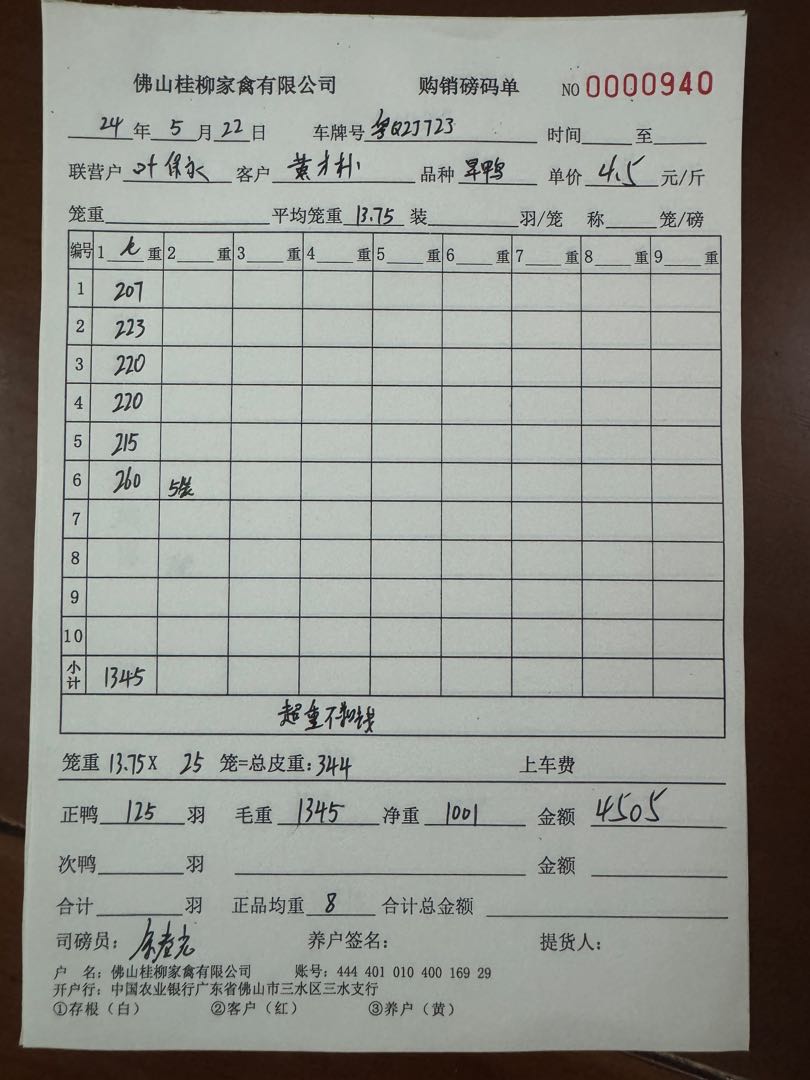 佛山桂柳家禽有限公司 购销磅码单 NO 0000940
24 年 5 月 22 日 车牌号 粤Q2J723 时间 至
联营户 叶保永 客户 黄才朴 品种 旱鸭 单价 4.5 元/斤
笼重 平均笼重 13.75 装 羽/笼 称 笼/磅
编号 1 重 2 重 3 重 4 重 5 重 6 重 7 重 8 重 9 重
1 207
2 223
3 220
4 220
5 215
6 260 5笼
7
8
9
10
小计 1345
超重不扣钱
笼重 13.75 X 25 笼=总皮重: 344 上车费
正鸭 125 羽 毛重 1345 净重 1001 金额 4505
次鸭 羽 金额
合计 羽 正品均重 8 合计总金额
司磅员: 养户签名: 提货人:
户 名: 佛山桂柳家禽有限公司 账号: 444 401 010 400 169 29
开户行: 中国农业银行广东省佛山市三水区三水支行
①存根(白) ②客户(红) ③养户(黄)